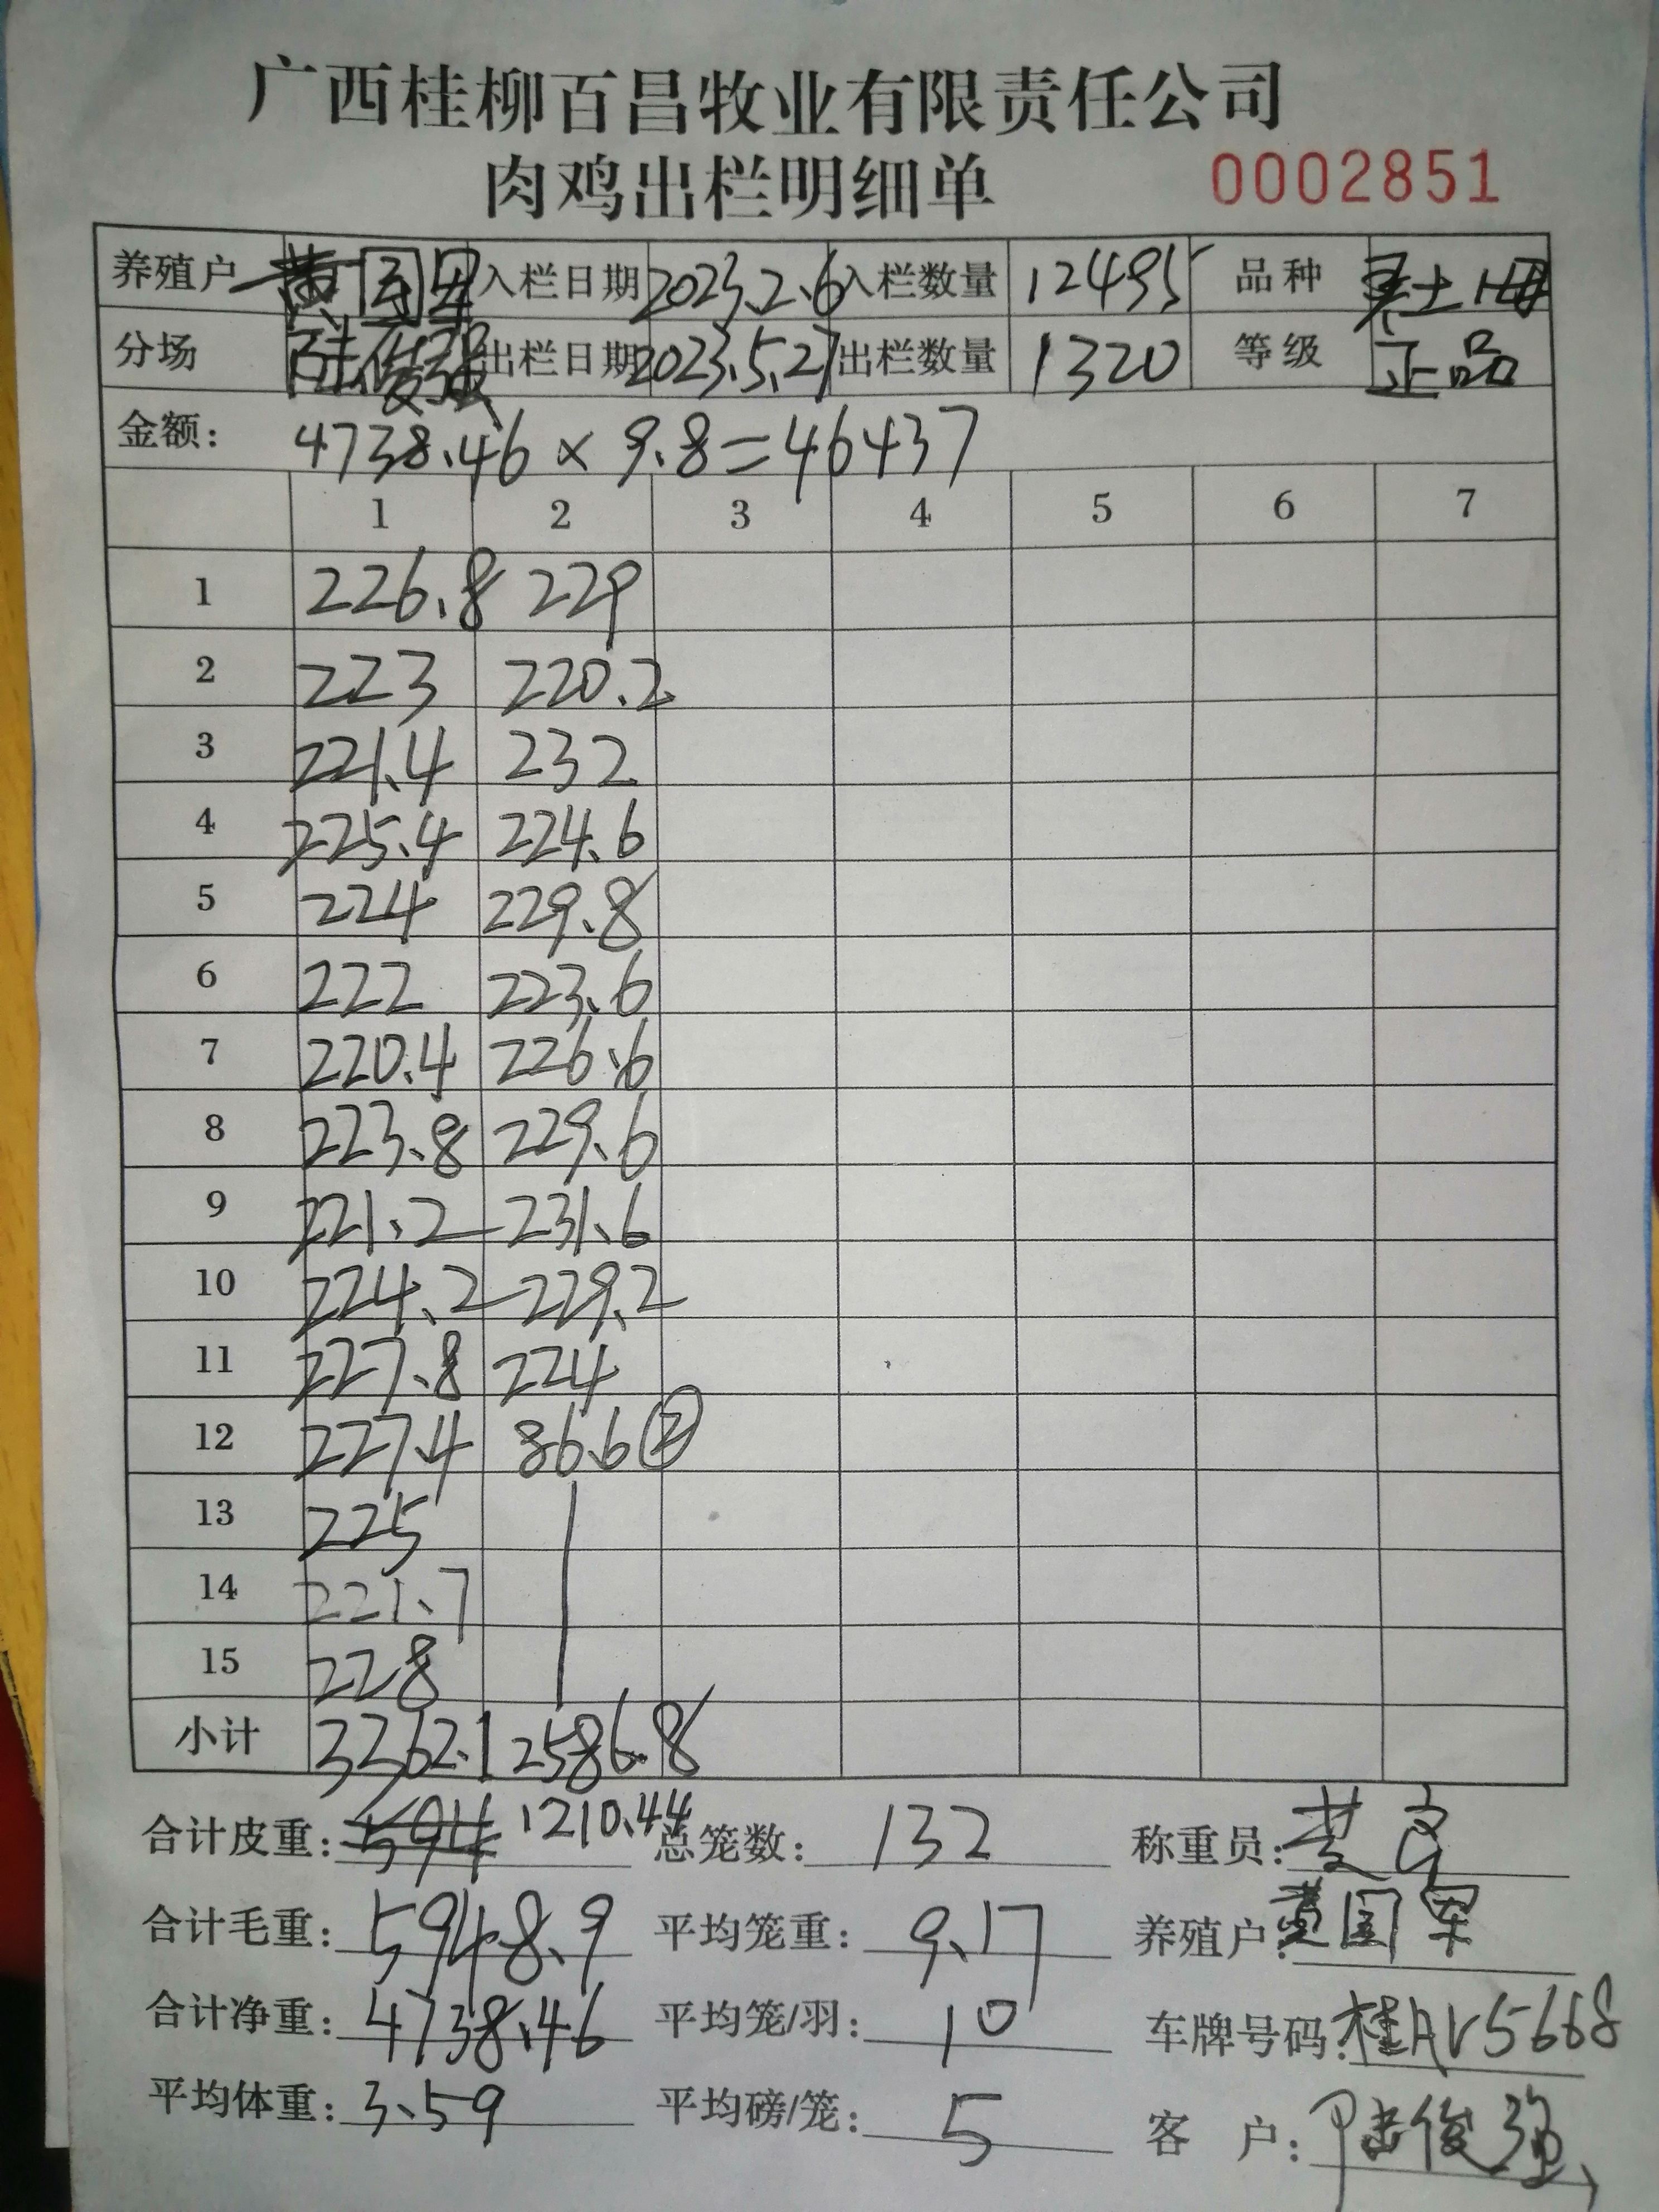 广西桂柳百昌牧业有限责任公司
肉鸡出栏明细单 0002851
养殖户 黄国军 入栏日期 2023.2.6 入栏数量 12495 品种 土
分场 陆俊强 出栏日期 2023.5.27 出栏数量 1320 等级 正品
金额: 4738.46 × 9.8=46437
1 2 3 4 5 6 7
1 226.8 229
2 223 220.2
3 221.4 232
4 225.4 224.6
5 224 229.8
6 222 223.6
7 220.4 226.6
8 223.8 229.6
9 221.2 231.6
10 224.2 229.2
11 227.8 224
12 227.4 86.6 ②
13 225
14 221.7
15 228
小计 3362.1 2586.8
合计皮重: 594 1210.44 总笼数: 132 称重员:
合计毛重: 5948.9 平均笼重: 9.17 养殖户: 黄国军
合计净重: 4738.46 平均笼/羽: 10 车牌号码: 桂AV5668
平均体重: 3.59 平均磅/笼: 5 客 户: 陆俊强